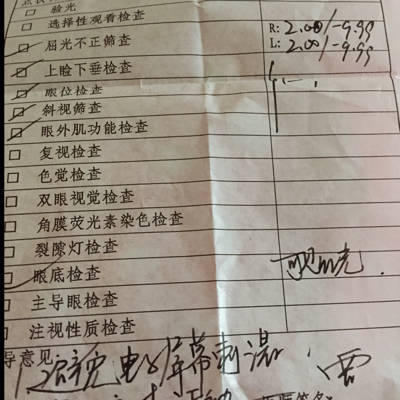 验光
选择性观看检查
屈光不正筛查
R: 2.00/-9.99
L: 2.00/-9.99
上睑下垂检查
眼位检查
斜视筛查
眼外肌功能检查
复视检查
色觉检查
双眼视觉检查
角膜荧光素染色检查
裂隙灯检查
眼底检查
主导眼检查
注视性质检查
导意见
电子屏幕刺激